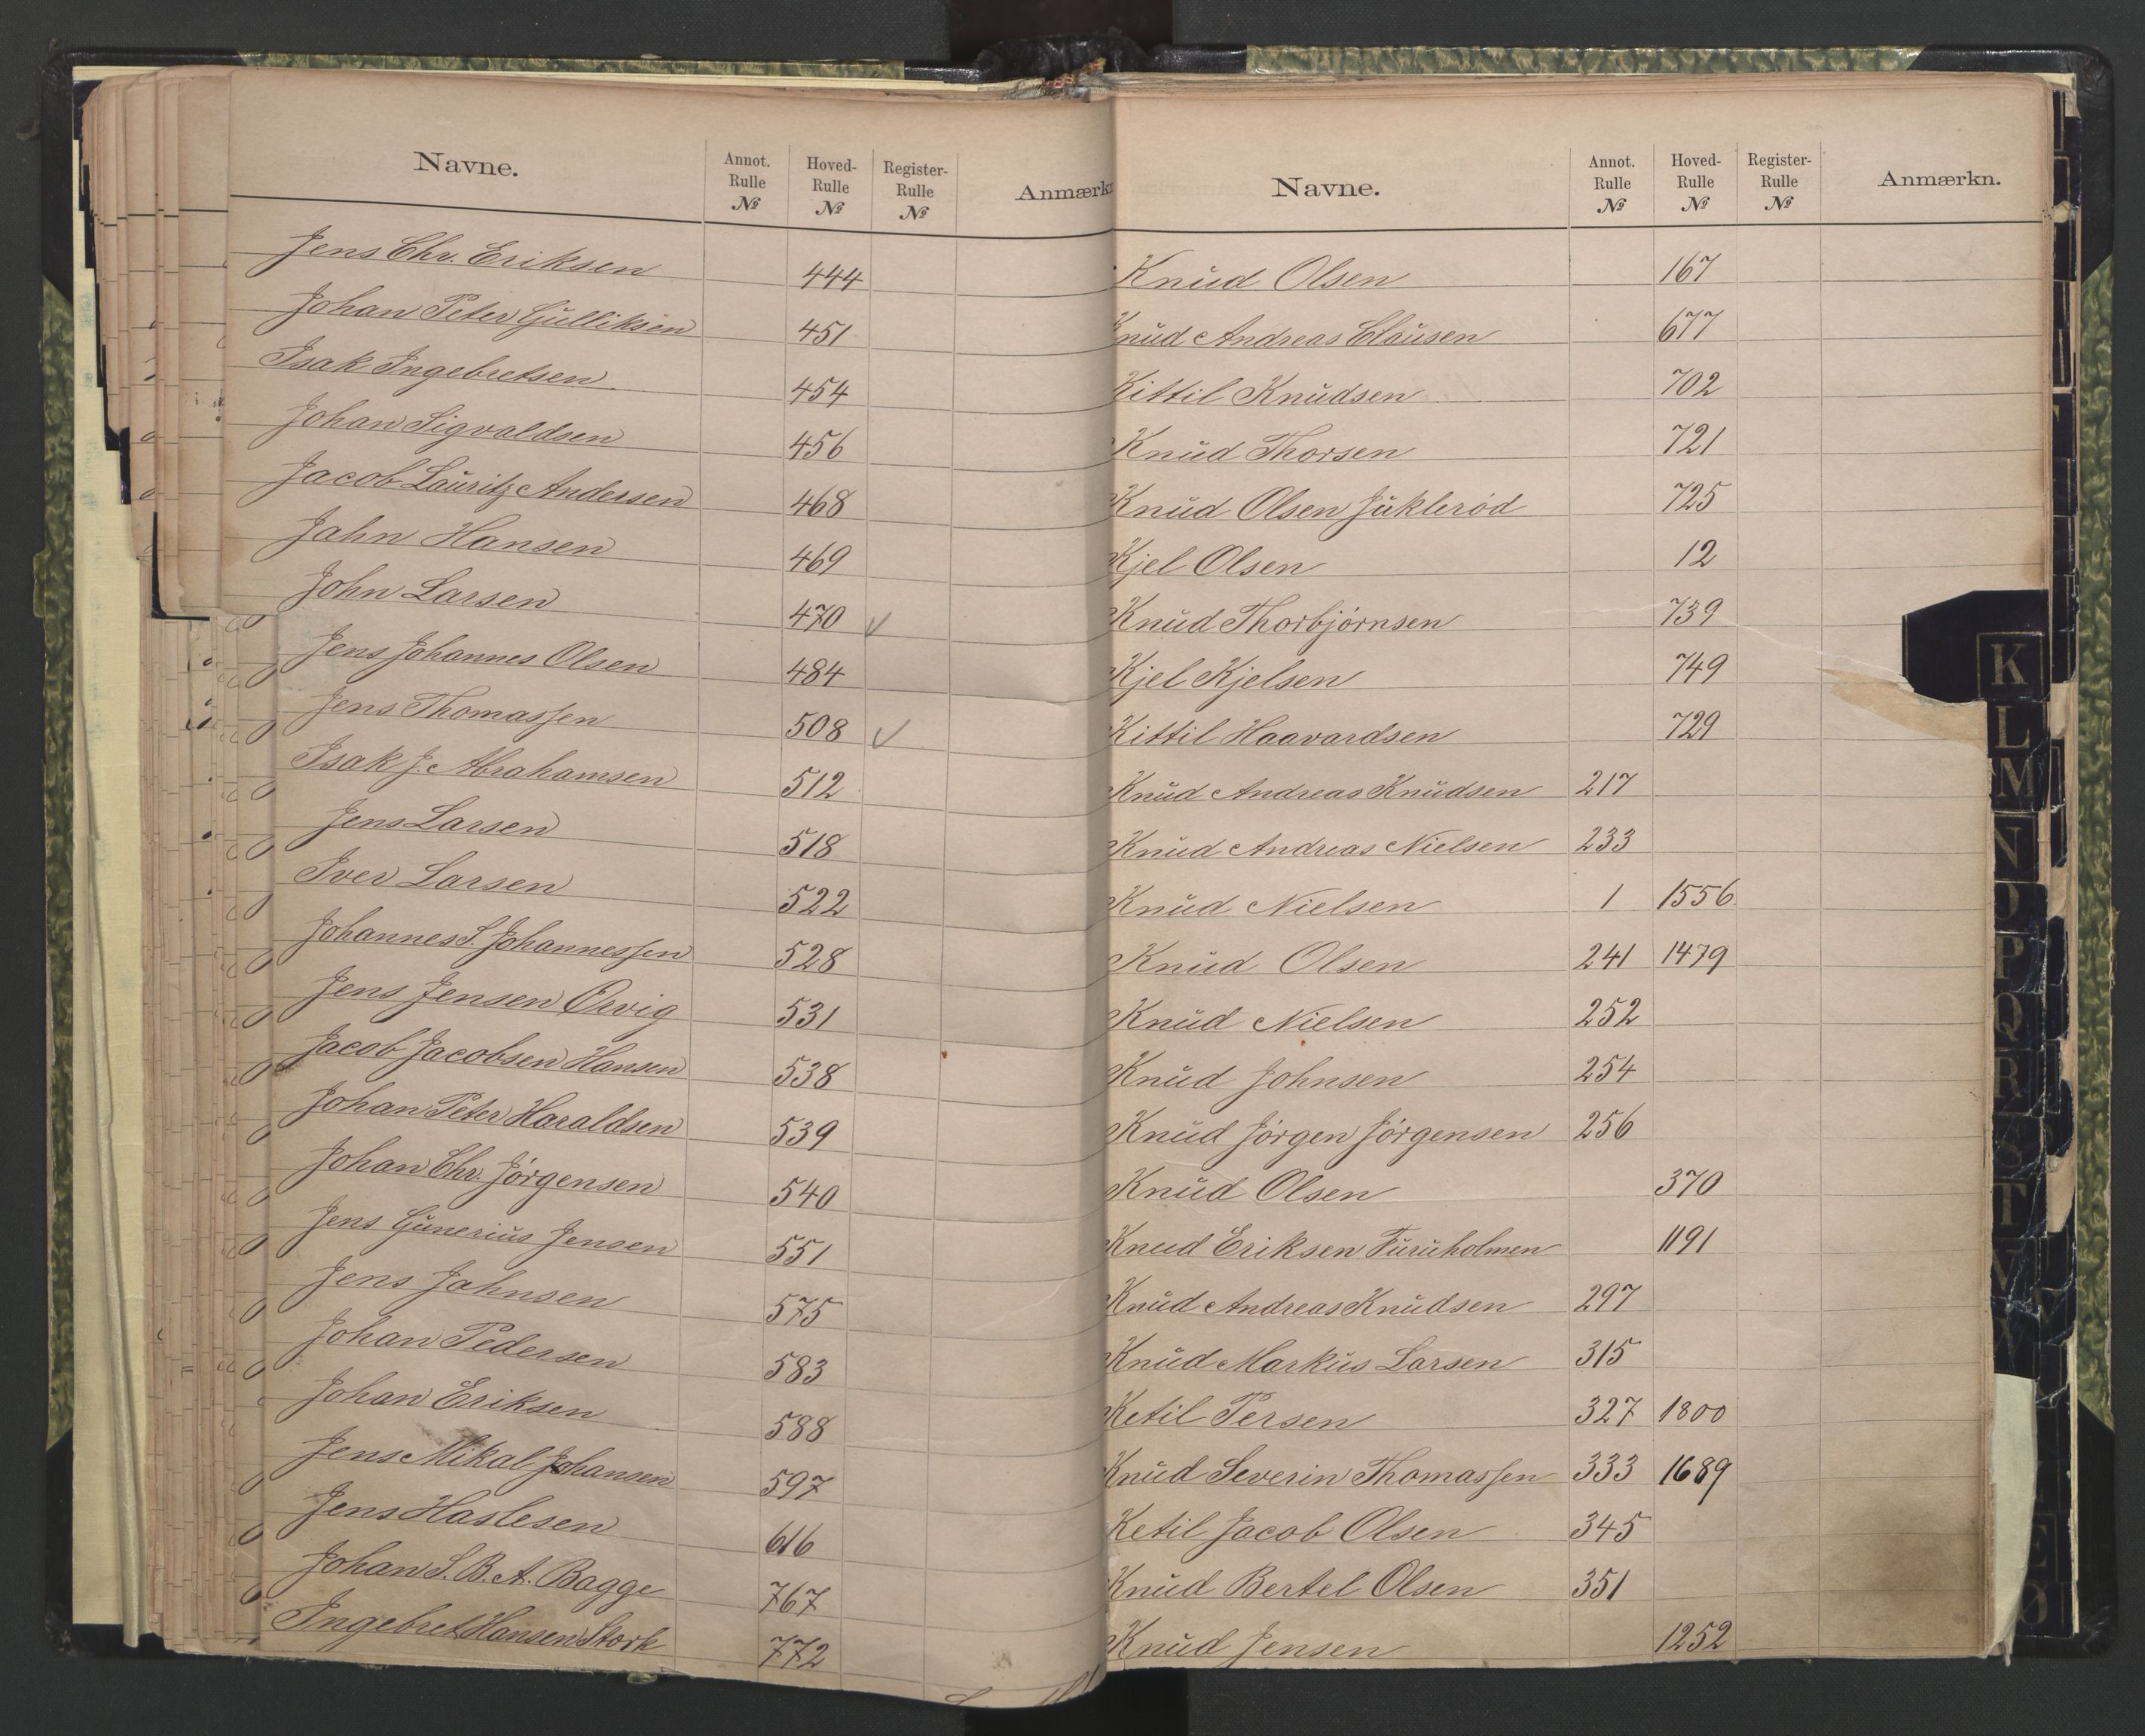 Navne. Annot. Rulle № Hoved- Rulle № Register- Rulle № Anmærkn
Jens Chr. Eriksen 444
Johan Peter Gulliksen 451
Isak Ingebretsen 454
Johan Sigvaldsen 456
Jacob Lauritz Andersen 468
Jahn Hansen 469
John Larsen 470 ✓
Jens Johannes Olsen 484
Jens Thomassen 508 ✓
Isak J. Abrahamsen 512
Jens Larsen 518
Iver Larsen 522
Johannes S. Johannessen 528
Jens Jensen Örvig 531
Jacob Jacobsen Hansen 538
Johan Peter Haraldsen 539
Johan Chr. Jörgensen 540
Jens Gunerius Jensen 551
Jens Jahnsen 575
Johan Pedersen 583
Johan Eriksen 588
Jens Mikal Johansen 597
Jens Haslesen 616
Johan S. B. A. Bagge 767
Ingebret Hansen Stork 772
Navne. Annot. Rulle № Hoved- Rulle № Register- Rulle № Anmærkn.
Knud Olsen 167
Knud Andreas Clausen 677
Kittil Knudsen 702
Knud Thorsen 721
Knud Olsen Juklerød 725
Kjel Olsen 12
Knud Thorbjørnsen 739
Kjel Kjelsen 749
Kittil Haavardsen 729
Knud Andreas Knudsen 217
Knud Andreas Nielsen 233
Knud Nielsen 1 1556
Knud Olsen 241 1479
Knud Nielsen 252
Knud Johnsen 254
Knud Jörgen Jörgensen 256
Knud Olsen 370
Knud Eriksen Furuholmen 1191
Knud Andreas Knudsen 297
Knud Markus Larsen 315
Ketil Persen 327 1800
Knud Severin Thomassen 333 1689
Ketil Jacob Olsen 345
Knud Bertel Olsen 351
Knud Jensen 1252
K
L
M
N
O
P
Q
R
S
T
V
X
Ø